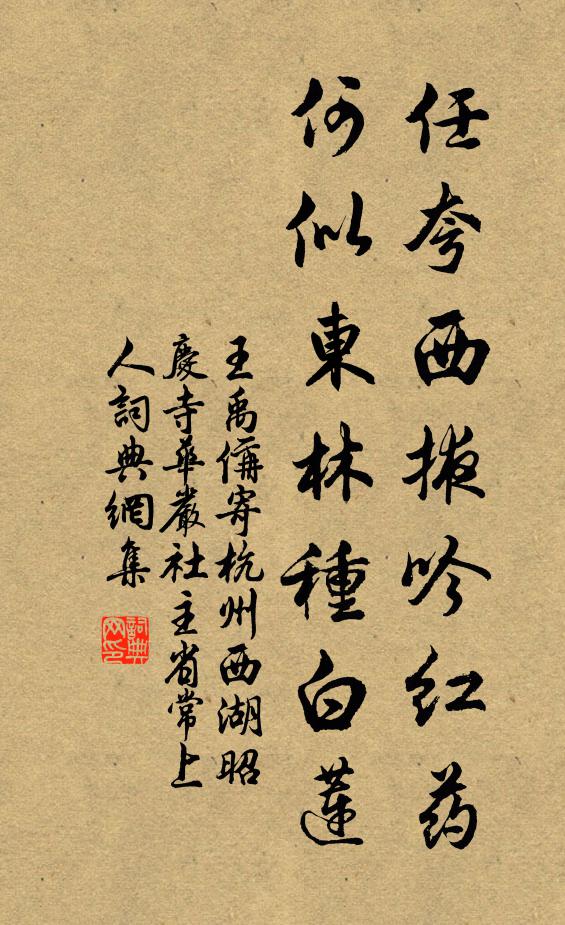 任夸西掖吟红药
何似東林種白蓮
王禹偁寄杭州西湖昭
慶寺華嚴社主省常上
人詞典網集
詞典
网印